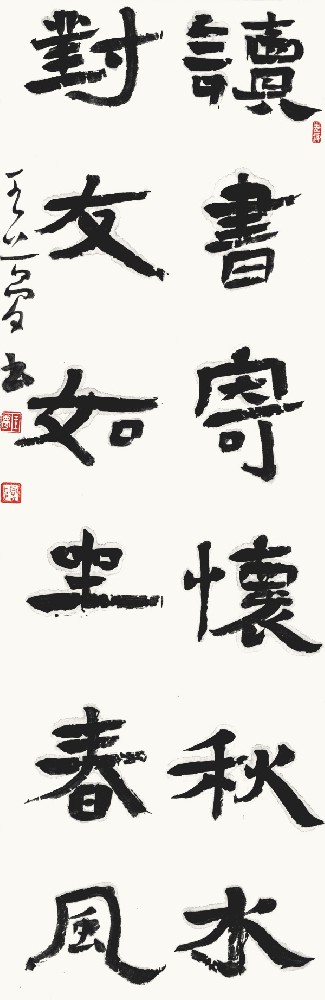 讀書寄懷秋水
對友如坐春風